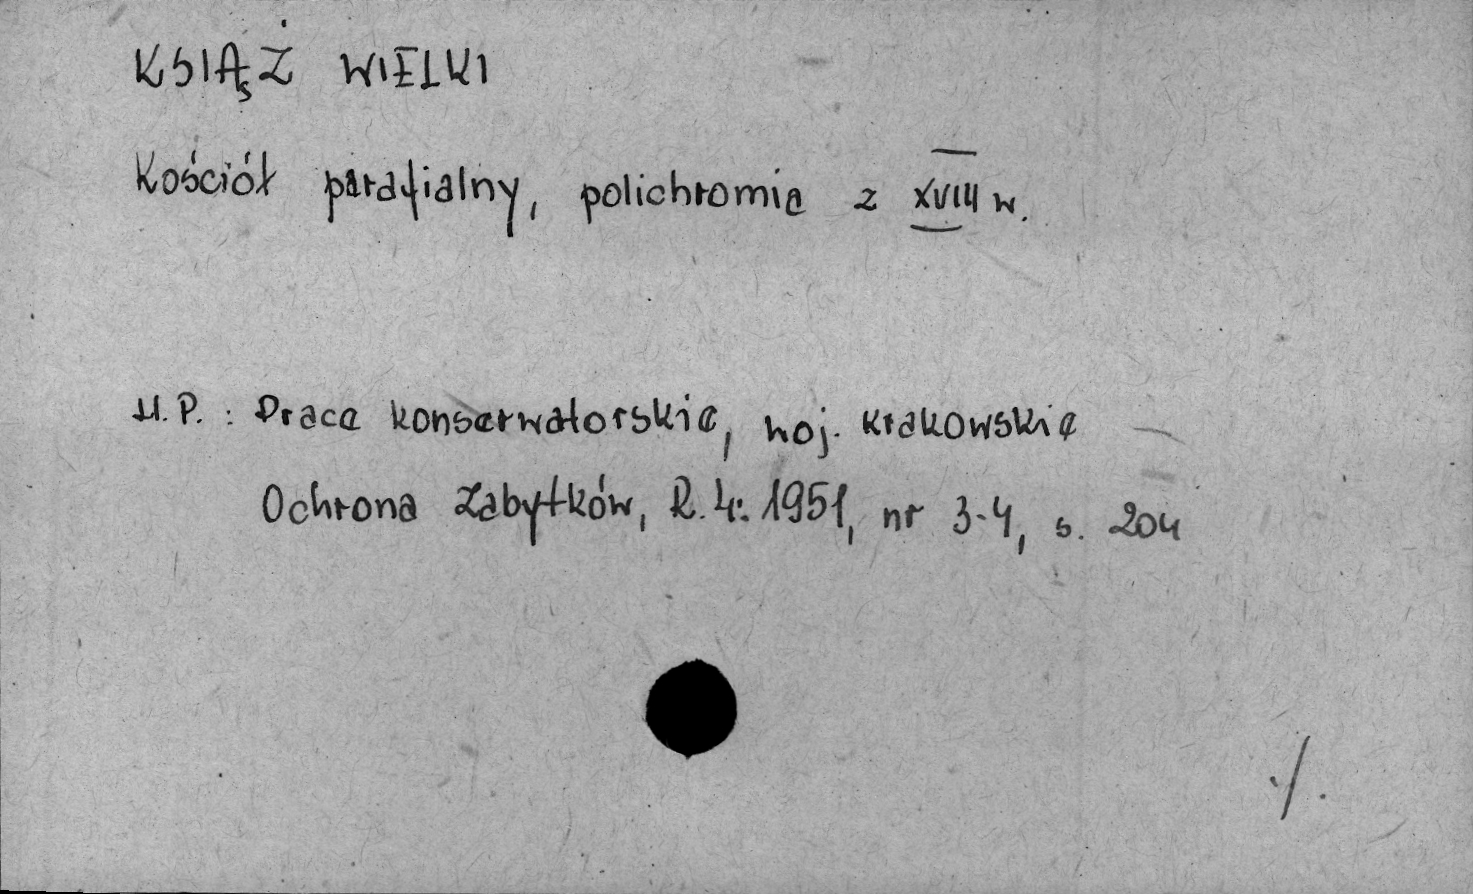 KSIĄŻ WIELKI
Kościół parafialny, polichromie z XVIII w.
H.P.: Prace konserwatorskie, woj. krakowskie
Ochrona Zabytków, R.4: 1951, nr 3-4, s. 204
./.